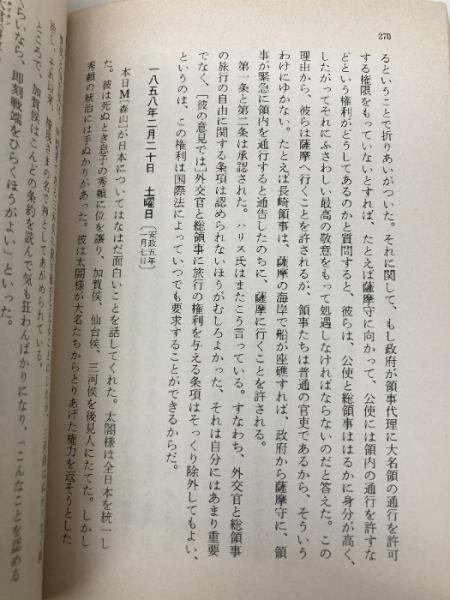 270
るということで折りあいがついた。それに関して、もし政府が領事代理に大名領の通行を許可
する権限をもっていないとすれば、たとえば薩摩守に向かって、公使には領内の通行を許すな
どという権利がどうしてあるのかと質問すると、彼らは、公使と総領事ははるかに身分が高く、
したがってそれにふさわしい最高の敬意をもって処遇しなければならないのだと答えた。この
理由から、彼らは薩摩へ行くことを許されるが、領事たちは普通の官吏であるから、そういう
わけにゆかない。たとえば長崎領事は、薩摩の海岸で船が座礁すれば、政府から薩摩守に、領
事が緊急に領内を通行すると通告したのちに、薩摩に行くことを許される。
第一条と第二条は承認された。ハリス氏はまたこう言っている。すなわち、外交官と総領事
の旅行の自由に関する条項は認められないほうがむしろよかった、それは自分にはあまり重要
でなく、〔彼の意見では〕外交官と総領事に旅行の権利を与える条項はそっくり除外してもよい、
というのは、この権利は国際法によっていつでも要求することができるからだ。
一八五八年二月二十日　土曜日〔安政五年一月七日〕
本日M〔森山〕が日本についてはなはだ面白いことを話してくれた。太閤様は全日本を統一し
た。彼は死ぬとき息子の秀頼に位を譲り、加賀侯、仙台侯、三河侯を後見人にたてた。しかし
秀頼の統治には手ぬかりがあった。彼は太閤様が大名たちからとりあげた権力を返そうとした
の名で神とあがめられている。
ところで、加賀侯はこんどの条約を読んで気も狂わんばかりになり、「こんなことを認める
くらいなら、即刻戦端をひらくほうがよい」といった。